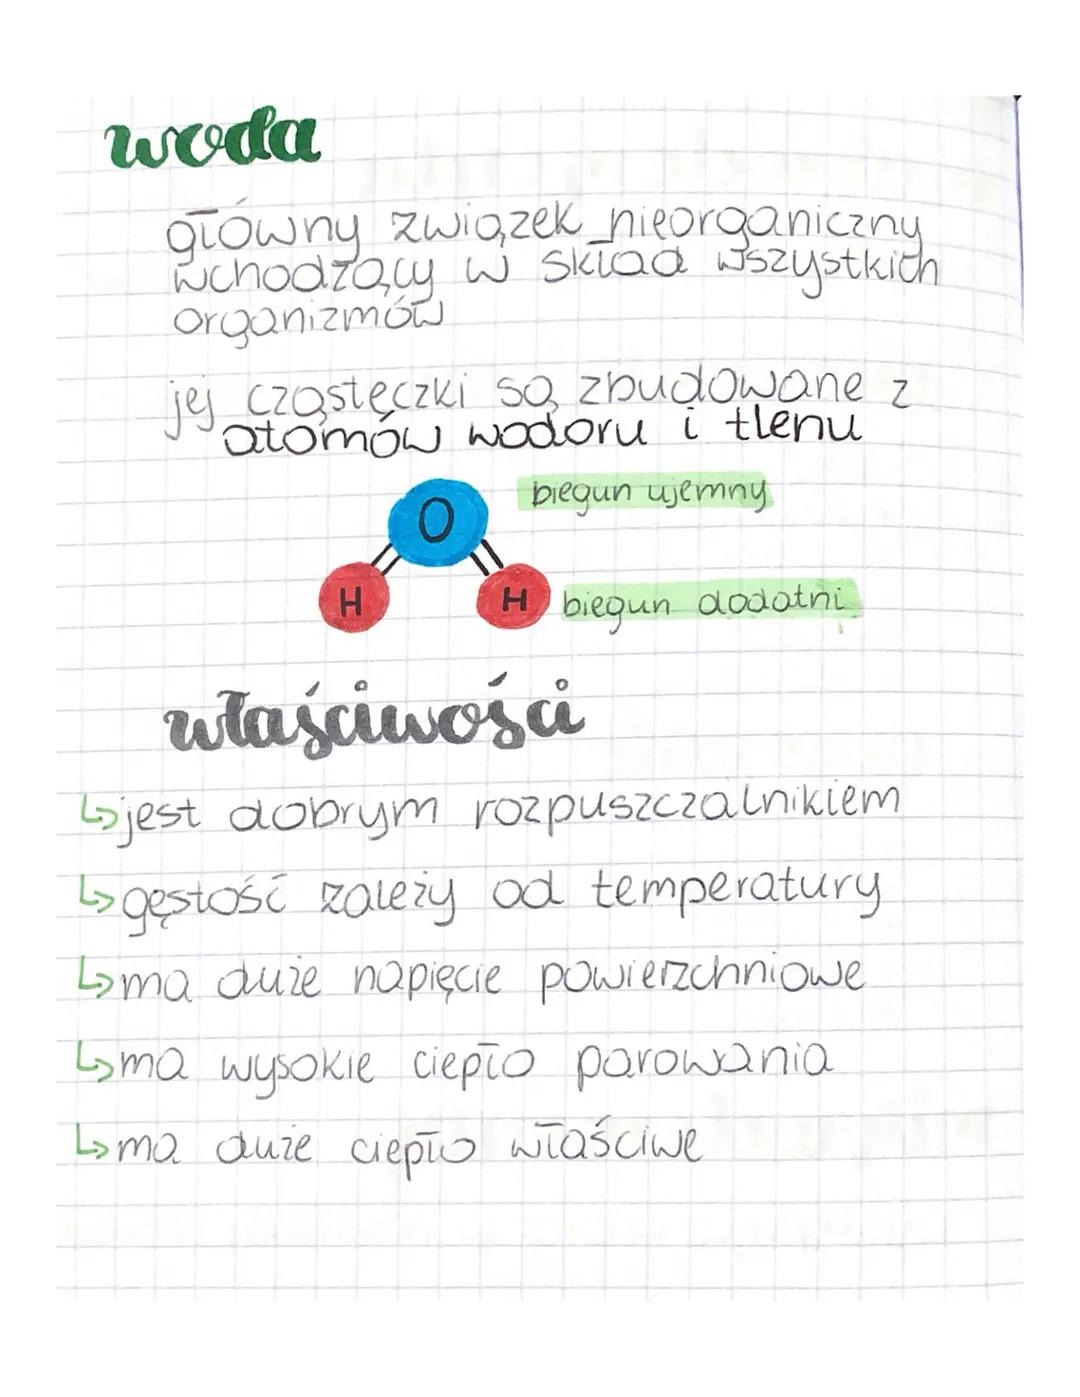 woda
główny związek nieorganiczny
wchodzący w skład wszystkich
organizmów
jej cząsteczki są zbudowane z
atomów wodoru i tlenu
O
biegun ujemny
H
H
biegun dodatni
właściwości
↳jest dobrym rozpuszczalnikiem
↳gęstość zależy od temperatury
↳ma duże napięcie powierzchniowe
↳ma wysokie ciepło parowania
↳ma duże ciepło właściwe